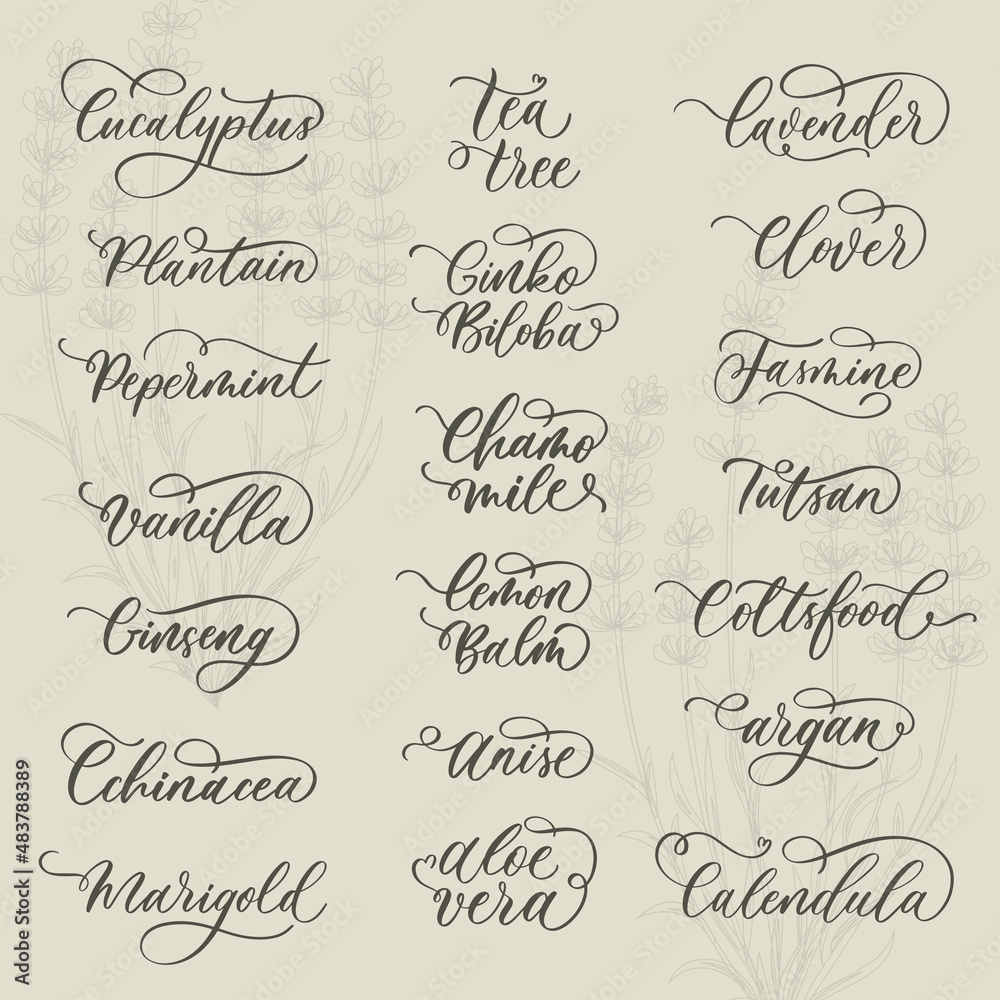 Eucalyptus
Plantain
Pepermint
Vanilla
Ginseng
Echinacea
Marigold
Tea
tree
Ginko
Biloba
Chamo
mile
Lemon
Balm
Anise
aloe
vera
Lavender
Clover
Jasmine
Tutsan
Coltsfood
argan
Calendula
Adobe Stock | #483788389